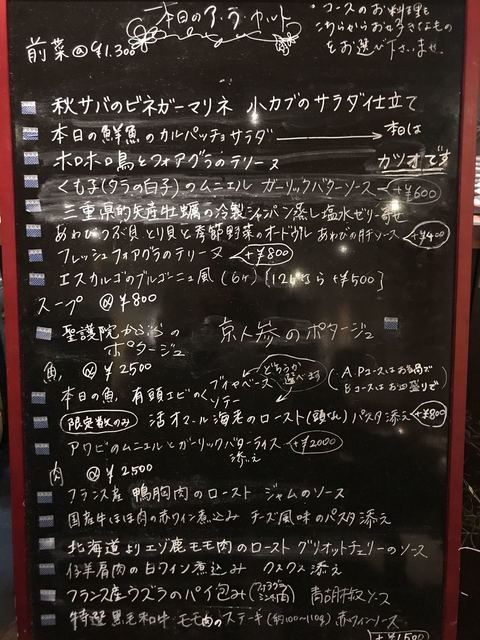 本日のア・ラ・カルト
・コースのお料理も
こちらからお好きなもの
をお選び下さいませ。
前菜 @¥1.300
秋サバのビネガーマリネ 小カブのサラダ仕立て
本日の鮮魚のカルパッチョサラダ → 本日は
カツオです
ホロホロ鳥とフォアグラのテリーヌ
くも子(タラの白子)のムニエル ガーリックバターソース +¥600
三重県的矢産牡蠣の冷製シャンパン蒸し塩水ゼリー寄せ
あわびつぶ貝とり貝と季節野菜のオードヴル あわびの肝ソース +¥400
フレッシュフォアグラのテリーヌ +¥800
エスカルゴのブルゴーニュ風 (6ヶ) [12ヶなら +¥500]
スープ @¥800
聖護院かぶらの
ポタージュ
京人参のポタージュ
魚 @¥2500
どちらか
選べます
本日の魚、有頭エビのブイヤベース
ソテー
(A.Pコースはお皿で
Bコースはお皿盛りで)
限定数のみ 活オマール海老のロースト(頭なし) パスタ添え +¥800
アワビのムニエルとガーリックバターライス
添え +¥2000
肉 @¥2500
フランス産 鴨胸肉のロースト ジャムのソース
国産牛ほほ肉の赤ワイン煮込み チーズ風味のパスタ添え
北海道よりエゾ鹿モモ肉のロースト グリオットチェリーのソース
仔羊肩肉の白ワイン煮込み クスクス添え
フランス産ウズラのパイ包み(フォアグラ
入り) 青胡椒ソース
特選黒毛和牛 モモ肉のステーキ(約100〜110g) 赤ワインソース
+¥1500